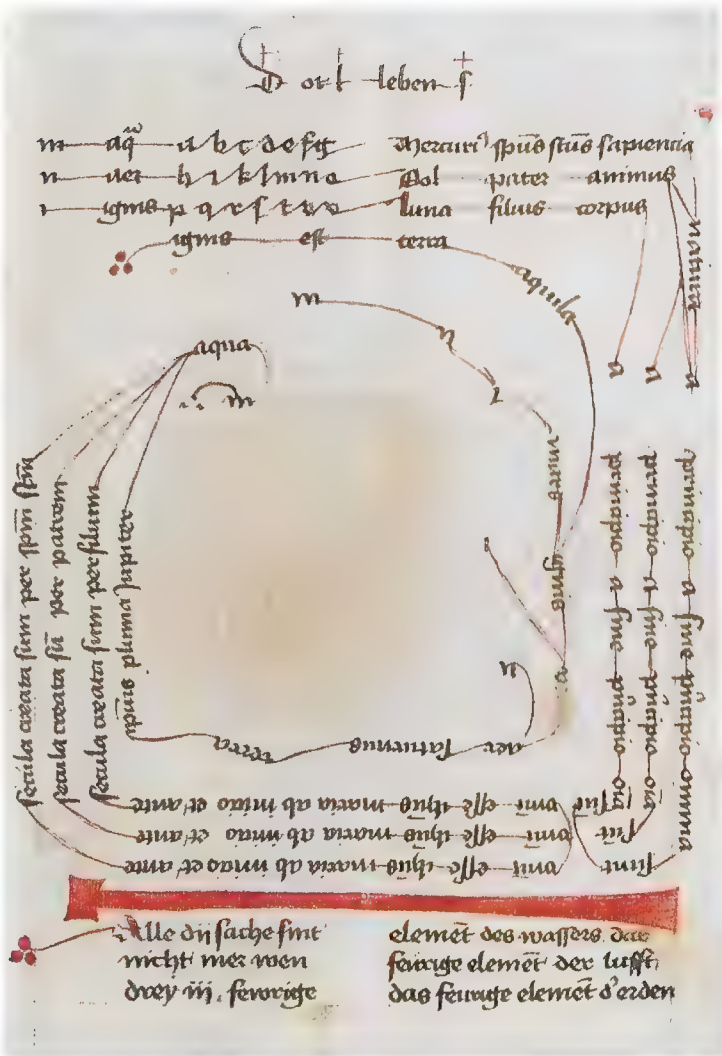 leben
m aq̃ a b c d e f g
Mercuri⁹ spũs sũs sapiencia
n aer h i k l m n o
Sol pater animus
i ignis p q r s t v
luna filius corpus
ignis est terra
aquila
natura
m
n
i
a
a
a
aqua
m
mars
ignis
i
a
n
aer saturnus
terra
pluma Jupiter
secula creata sum per spm̃ sm̃
secula creata sũ per patrem
secula creata sum per filium
principio a fine p̃ncipio oĩa
principio a fine p̃ncipio oĩa
principio a fine p̃ncipio omnia
sũt om̃i esse ihũs maria ab inicio et ante
sũt om̃i esse ihũs maria ab inicio et ante
sunt om̃i esse ihũs maria ab inicio et ante
Alle dij sache sint
nicht mer wen
drey iij. fewrige
elemẽt des wassers das
feurige elemẽt der lufft
das feurige elemẽt d' erden